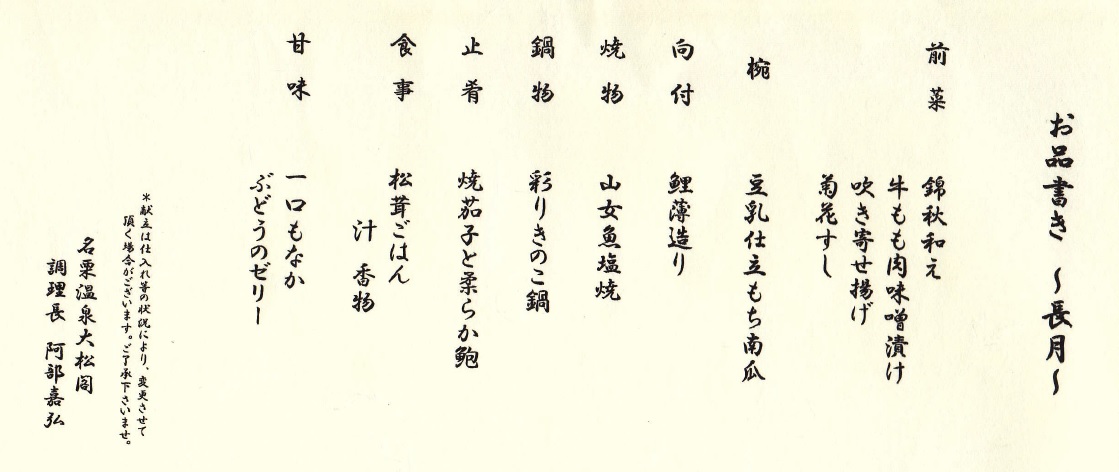 お品書き ～長月～
前菜 錦秋和え
牛もも肉味噌漬け
吹き寄せ揚げ
菊花すし
椀 豆乳仕立もち南瓜
向付 鯉薄造り
焼物 山女魚塩焼
鍋物 彩りきのこ鍋
止肴 焼茄子と柔らか鮑
食事 松茸ごはん
汁 香物
甘味 一口もなか
ぶどうのゼリー
*献立は仕入れ等の状況により、変更させて
頂く場合がございます。ご了承下さいませ。
名栗温泉大松閣
調理長 阿部嘉弘